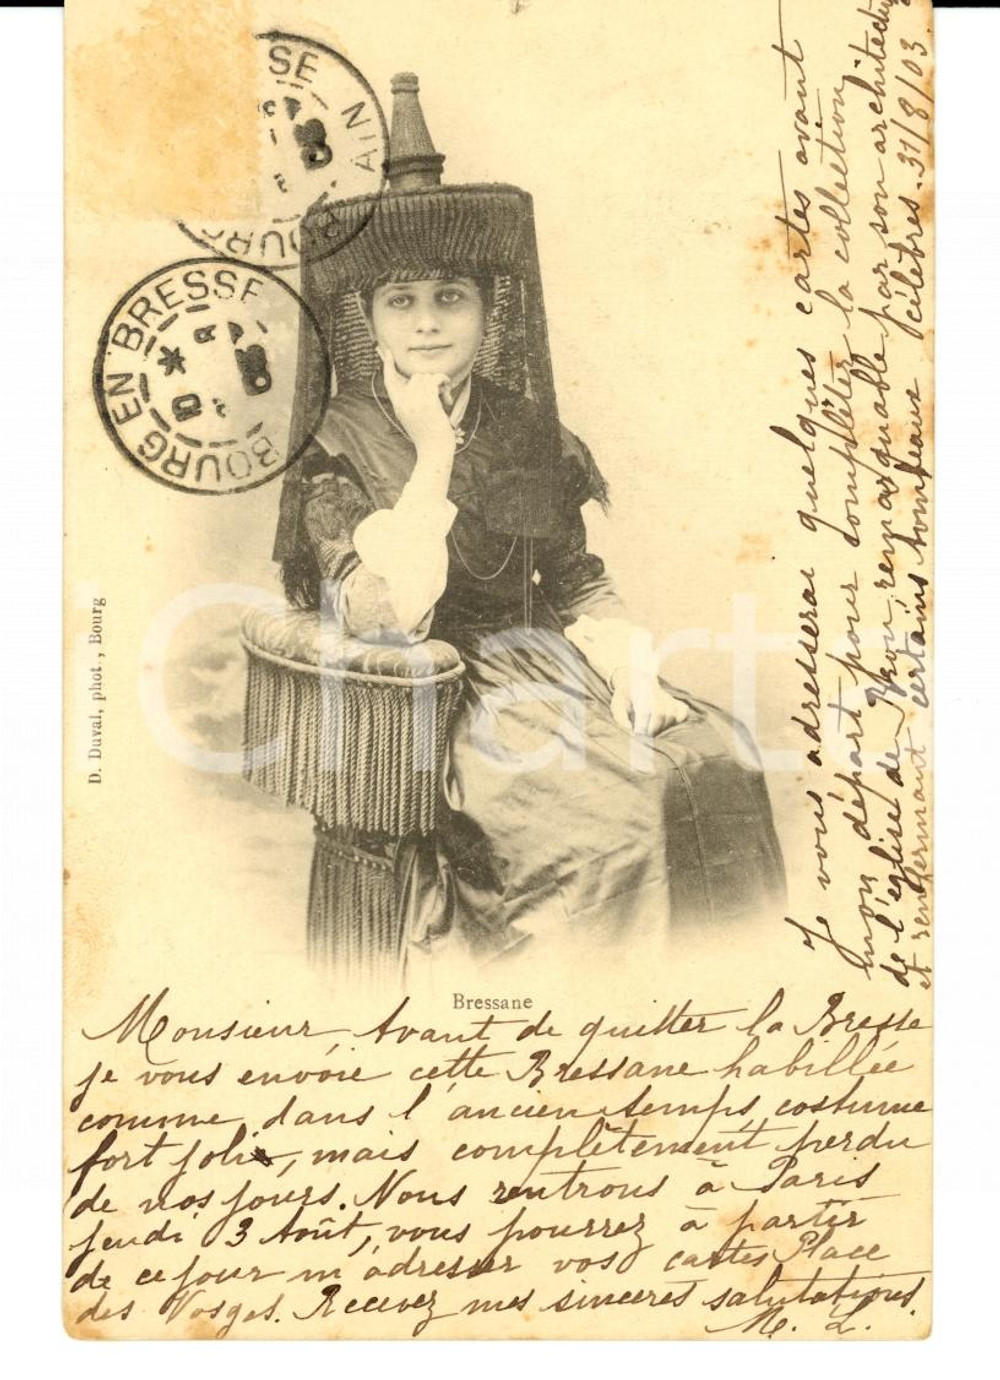 BOURG EN BRESSE
AIN
BOURG
BOURG EN BRESSE
D. Duval, phot., Bourg
Bressane
Monsieur, Avant de quitter la Bresse
je vous envoie cette Bressane habillée
comme dans l'ancien temps, costume
fort joli, mais complètement perdu
de nos jours. Nous rentrons à Paris
jeudi 3 Août, vous pourrez à partir
de ce jour m'adresser vos cartes Place
des Vosges. Recevez mes sincères salutations.
M. L.
Je vous adresserai quelques cartes avant
mon départ pour compléter la collection
de l'église de Brou, remarquable par son architecture
et renfermant certains tombeaux célèbres. 31/8/03
Chart